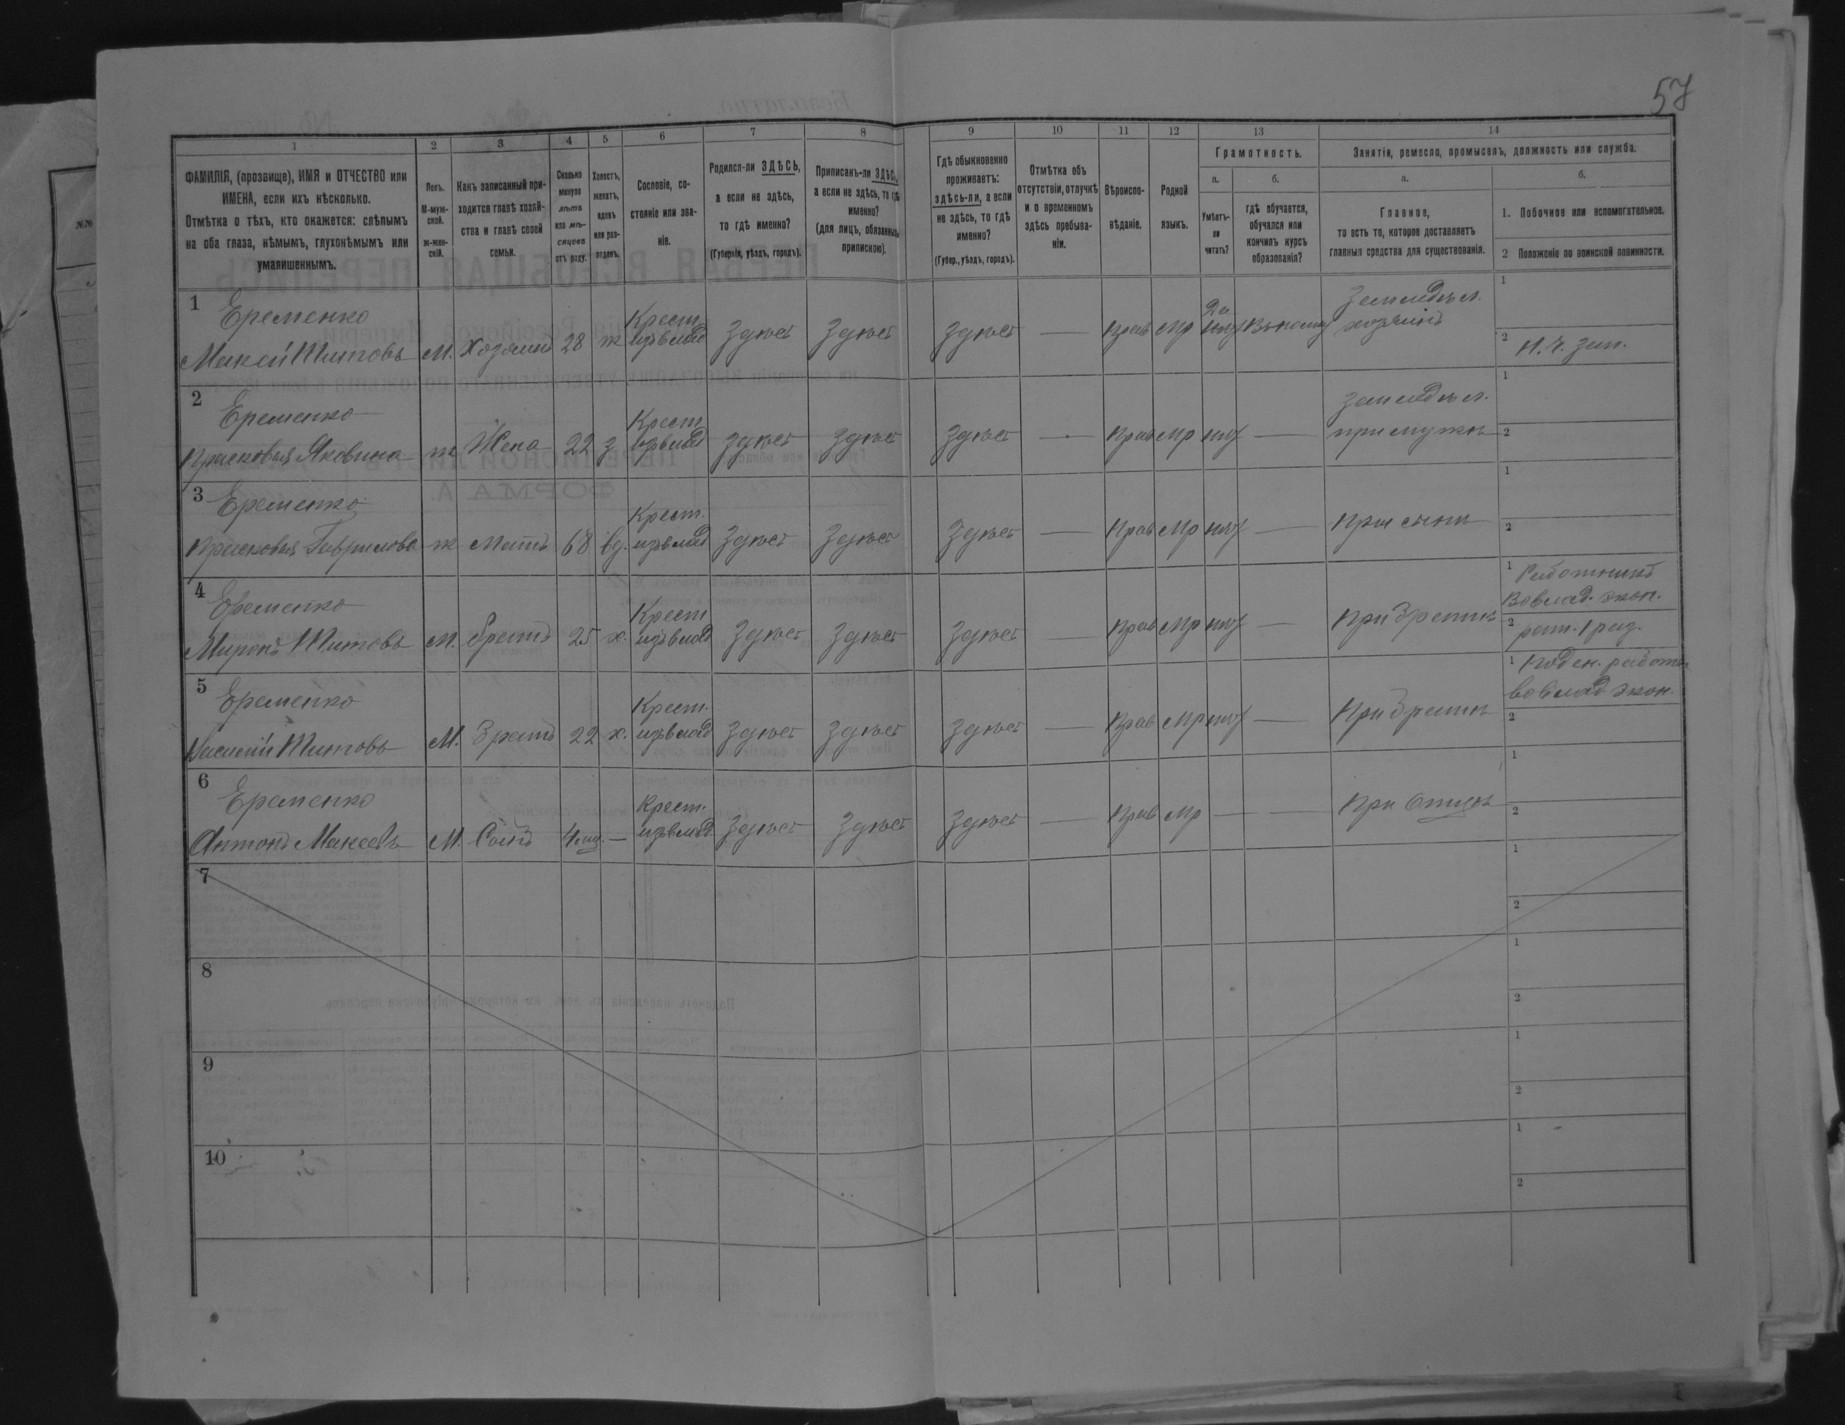 57
1 2 3 4 5 6 7 8 9 10 11 12 13 14
ФАМИЛІЯ, (прозвище), ИМЯ и ОТЧЕСТВО или
ИМЕНА, если ихъ нѣсколько.
Отмѣтка о тѣхъ, кто окажется: слѣпымъ
на оба глаза, нѣмымъ, глухонѣмымъ или
умалишеннымъ.
Полъ.
М-муж-
ской.
ж-жен-
скій.
Какъ записанный при-
ходится главѣ хозяй-
ства и главѣ своей
семьи.
Сколько
минуло
лѣтъ
или мѣ-
сяцевъ
отъ роду.
Холостъ,
женатъ,
вдовъ
или раз-
веденъ.
Сословіе, со-
стояніе или зва-
ніе.
Родился-ли ЗДѢСЬ,
а если не здѣсь,
то гдѣ именно?
(Губернія, уѣздъ, городъ).
Приписанъ-ли ЗДѢСЬ,
а если не здѣсь, то гдѣ
именно?
(для лицъ, обязанныхъ
припискою).
Гдѣ обыкновенно
проживаетъ:
здѣсь-ли, а если
не здѣсь, то гдѣ
именно?
(Губер., уѣздъ, городъ).
Отмѣтка объ
отсутствіи, отлучкѣ
и о временномъ
здѣсь пребыва-
ніи.
Вѣроиспо-
вѣданіе.
Родной
языкъ.
Грамотность.
а.
Умѣетъ-
ли
читать?
б.
гдѣ обучается,
обучался или
кончилъ курсъ
образованія?
Занятія, ремесло, промыселъ, должность или служба.
а.
Главное,
то есть то, которое доставляетъ
главныя средства для существованія.
б.
1. Побочное или вспомогательное.
2 Положеніе по воинской повинности.
1 Еременко
Макей Титовъ М. Хозяинъ 28 ж Крест. изъ влад здѣсь здѣсь здѣсь — Прав Мр
Земледѣл.
хозяинъ
1
2 Н. Ч. зап.
2 Еременко
Прасковья Яковлева ж Жена 22 з Крест. изъ влад здѣсь здѣсь здѣсь — Прав Мр нѣт —
Земледѣл.
при мужѣ
1
2
3 Еременко
Прасковья Гаврилова ж Мать 68 вд. Крест. изъ влад здѣсь здѣсь здѣсь — Прав Мр нѣт — При сынѣ
1
2
4 Еременко
Миронъ Титовъ М. Братъ 25 х. Крест. изъ влад здѣсь здѣсь здѣсь — Прав Мр нѣт — При братѣ
1 Работникъ
во влад. экон.
2 рат. 1 раз.
5 Еременко
Василій Титовъ М. Братъ 22 х. Крест. изъ влад здѣсь здѣсь здѣсь — Прав Мр нѣт — При братѣ
1 Поден. работ.
во влад экон.
2
6 Еременко
Антонъ Макеевъ М. Сынъ 4 мц. — Крест. изъ влад. здѣсь здѣсь здѣсь — Прав Мр — — При отцѣ
1
2
7
1
2
8
1
2
9
1
2
10
1
2